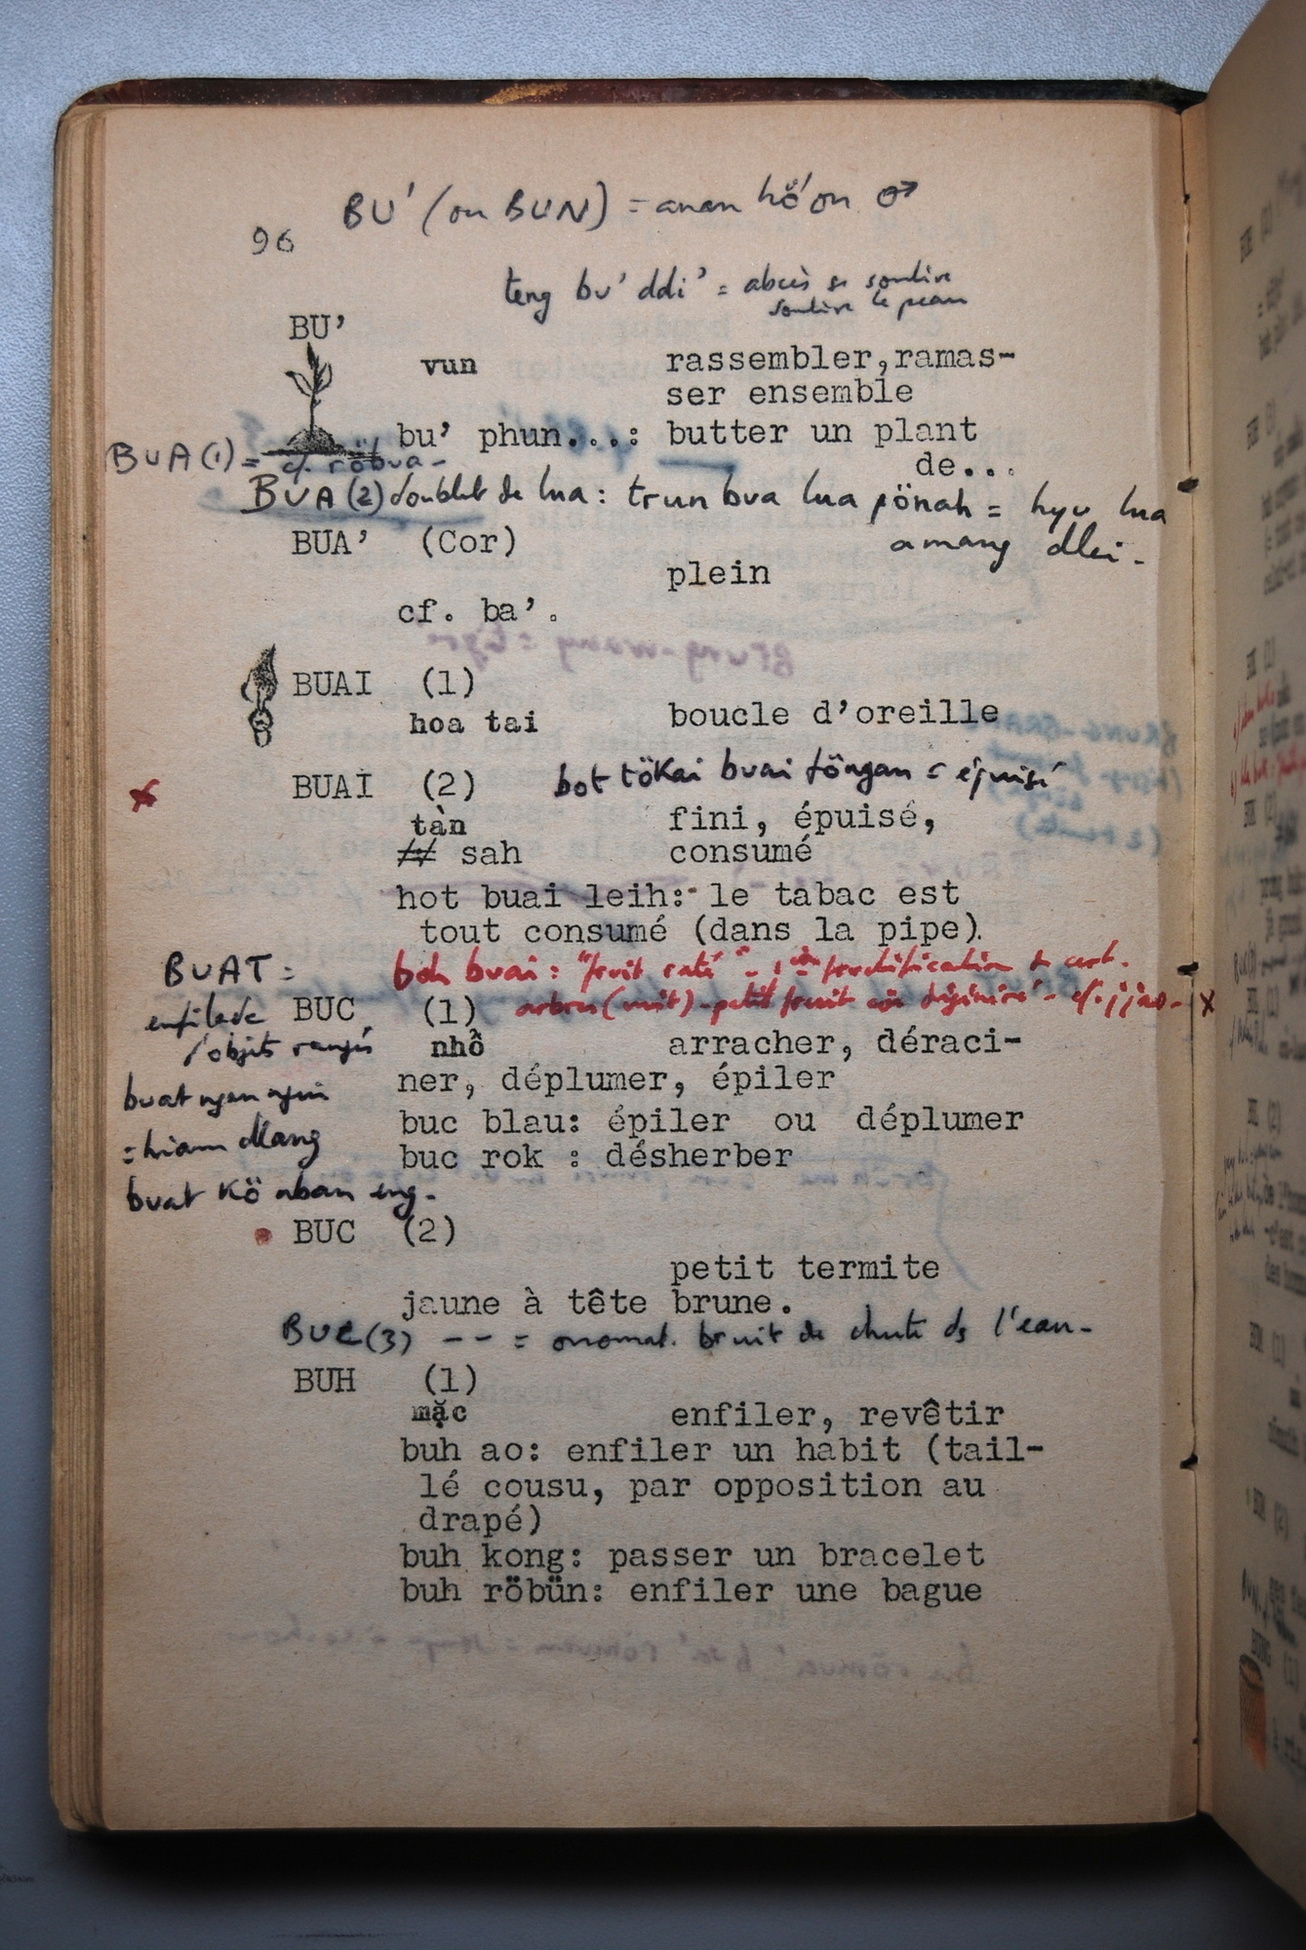 BU' (ou BUN) = anan hö'on ♂
96
teng bu' ddi' = abcès se soulève
soulève la peau
BU'
vun rassembler,ramas-
ser ensemble
bu' phun...: butter un plant
de...
BUA (1) = cf. röbua -
BUA (2) doublet de lua : trun bua lua pönah = hyu lua
amang dlei -
BUA' (Cor)
plein
cf. ba'.
BUAI (1)
hoa tai boucle d'oreille
BUAI (2) bot tökai buai töngan = épuisé
tàn fini, épuisé,
sah consumé
hot buai leih: le tabac est
tout consumé (dans la pipe).
BUAT = boh buai : "fruit raté" - 1ère fructification de cert.
enfilade BUC (1) arbres (mit) - petit fruit dégénéré - cf. jjao -
d'objets rangés nhổ arracher, déraci-
ner, déplumer, épiler
buat ngan ngin
buc blau: épiler ou déplumer
= hiam dlang
buc rok : désherber
buat kö aban eng.
BUC (2)
petit termite
jaune à tête brune.
BUC (3) -- = onomat. bruit de chute ds l'eau -
BUH (1)
mặc enfiler, revêtir
buh ao: enfiler un habit (tail-
lé cousu, par opposition au
drapé)
buh kong: passer un bracelet
buh röbün: enfiler une bague